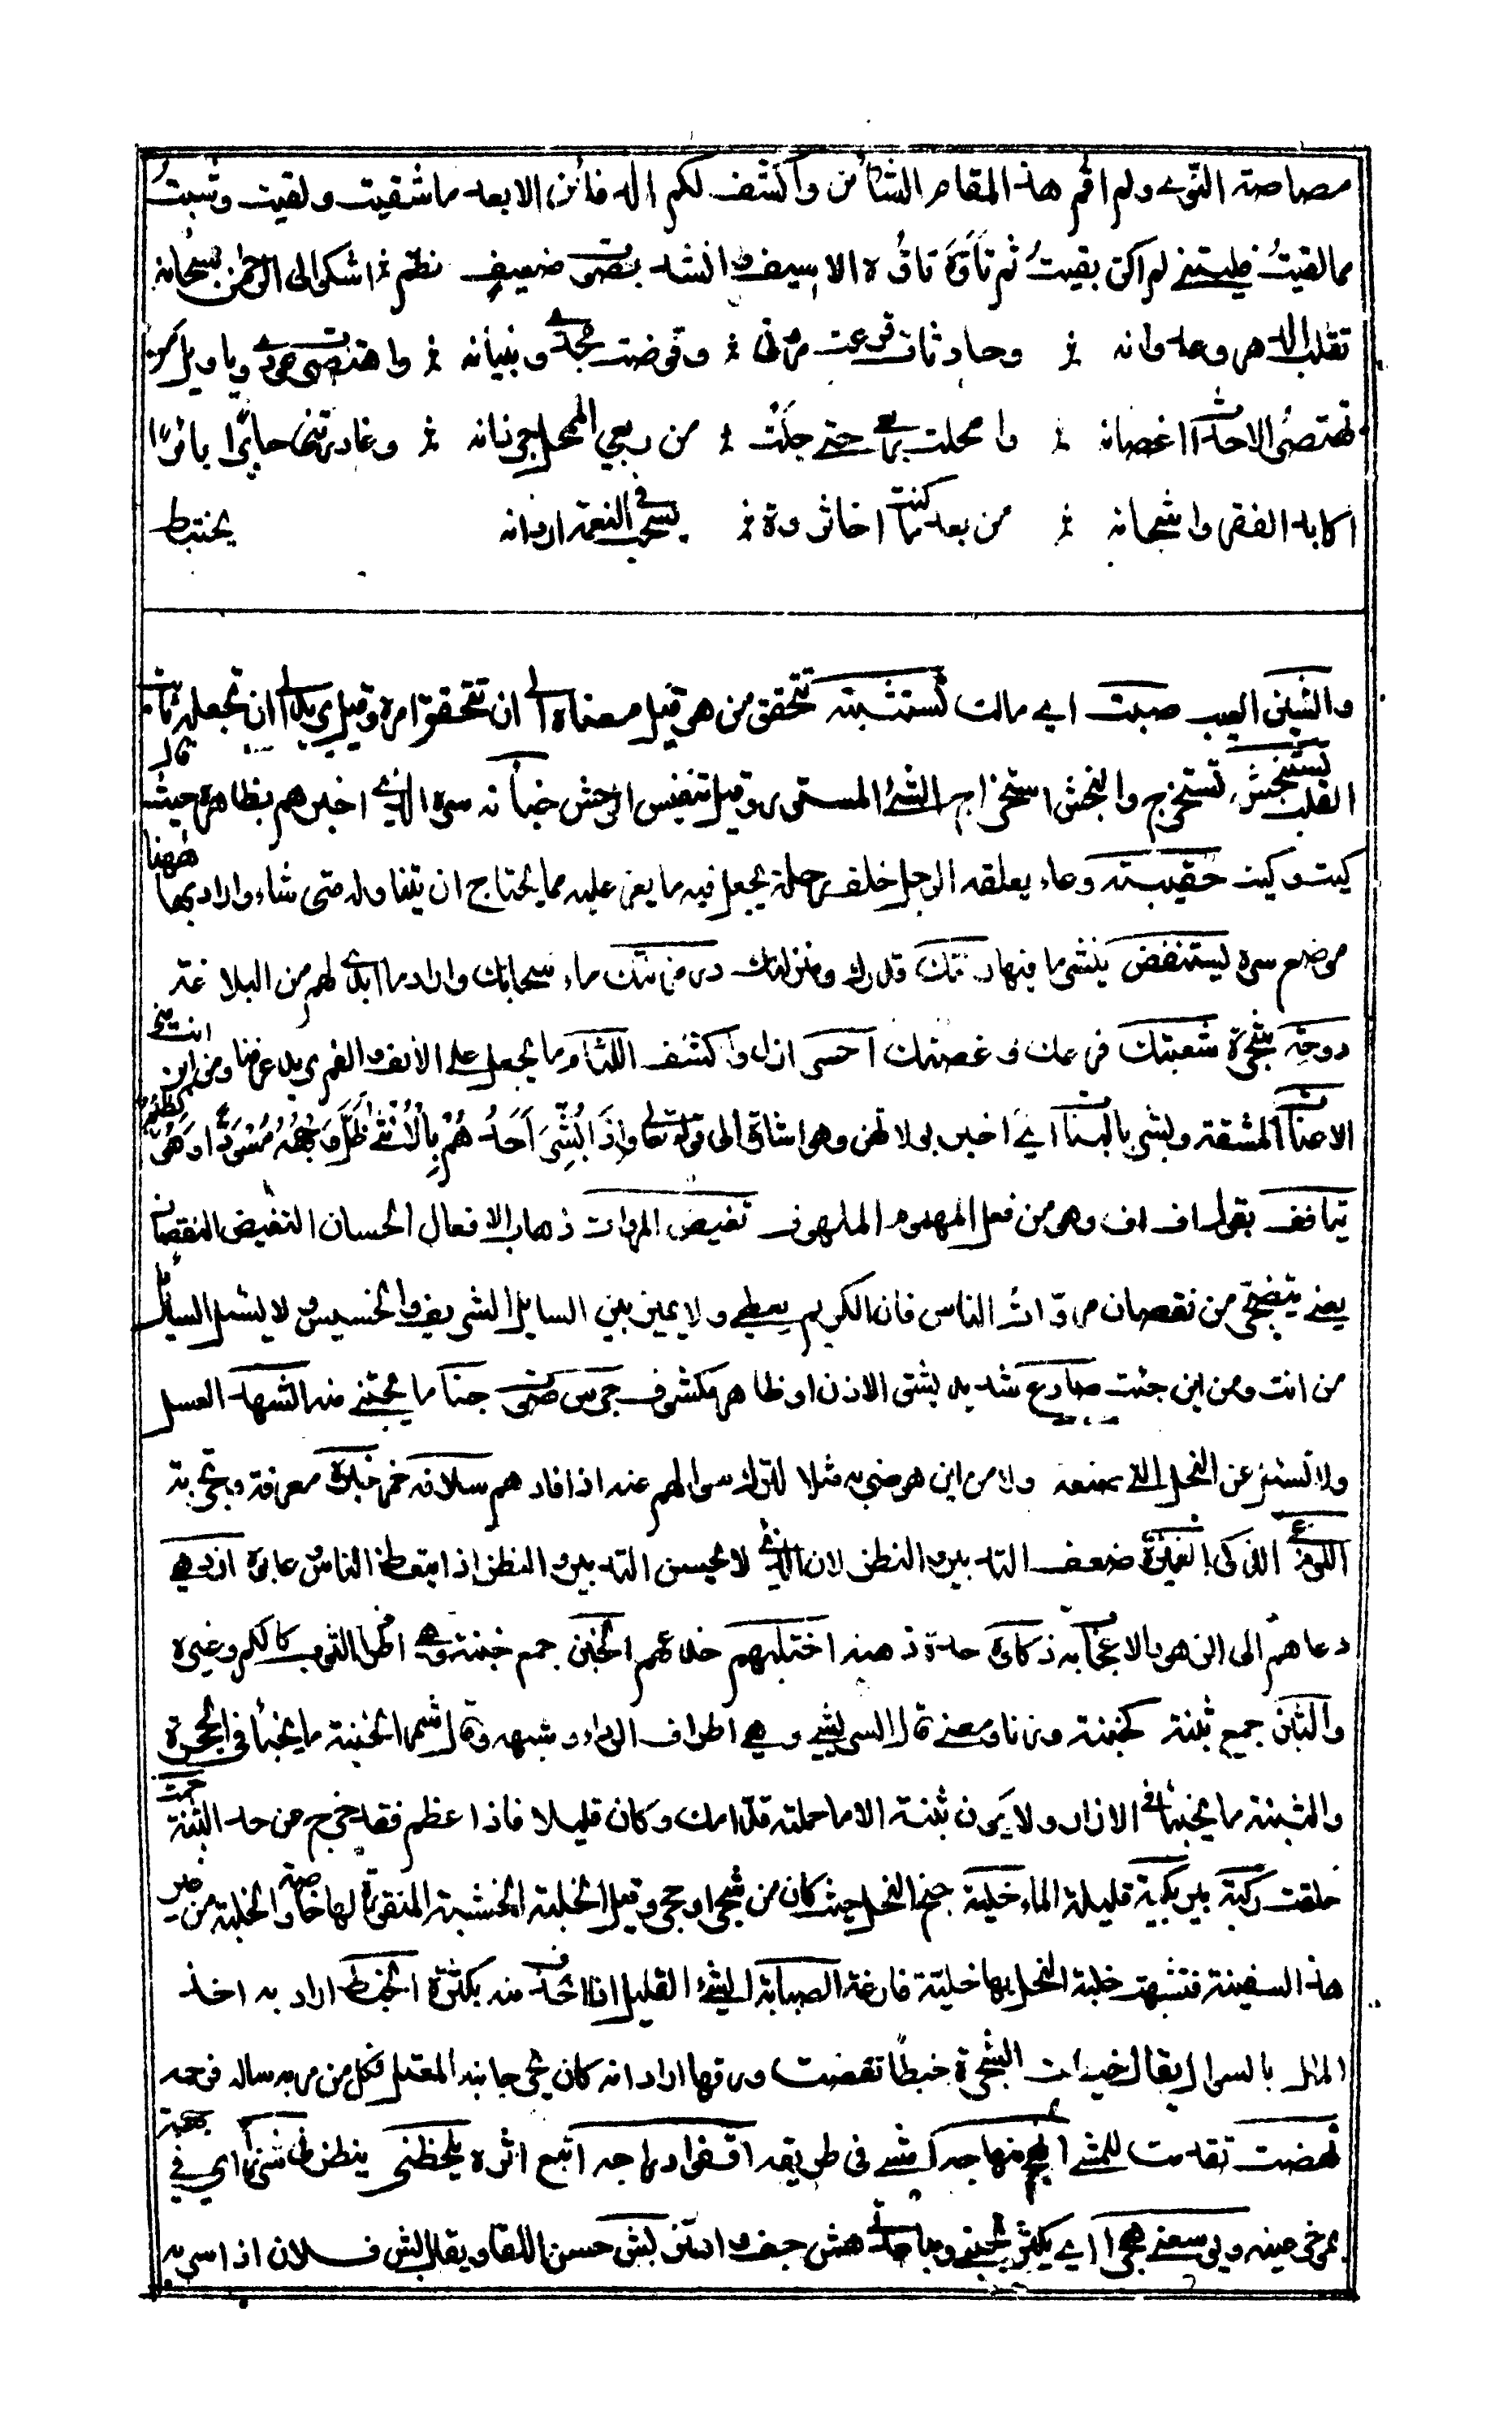 مصاصة الثرى ولم اقم هذا المقام الشائن واكشف لكم الدفائن الا بعد ما شقيت ولقيت وشبت
مما لقيت فليتني لم اكن بقيت ثم تأوه تأوه الاسيف وانشد بصوت ضعيف نظم اشكو الى الرحمن سبحانه
تقلب الدهر وعدوانه وحادثات قرعت مروتي وقوضت مجدي وبنيانه واهتصرت عودي ويا ويل من
تهتصر الاحداث اغصانه وامحلت ربعي حتى جلت من ربعي الممحل جرذانه وغادرتني حائرا بائرا
اكابد الفقر واشجانه من بعد ما كنت اخا ثروة يسحب في النعمة اردانه يختبط
والشين العيب صبت اي مالت تستثبته تتحقق من هو قيل معناه الى ان تتحقق امره وقيل يريد الى ان تجعله ثابت
القلب تستنجش تستخرج والنجش استخراج الشئ المستور وقيل تنفيس الوحش خبأته سره الذي اخبرهم بظاهره حيث قال
كيت وكيت حقيبته وعاء يعلقه الرجل خلف رحله يجعل فيه ما يعز عليه مما يحتاج ان يتناوله متى شاء واراد بها ههنا
موضع سره ليستنفض ينثر ما فيها رتبتك قدرك ومنزلتك در مزنتك ماء سحابك واراد ما ابدى لهم من البلاغة
دوحة شجرة شعبتك فرعك وغصنك احسر ازل واكشف اللثام ما يجعل على الانف والفم يريد عرفنا ومن اين انت
الاعنات المشقة وبشر بالبنات اي اخبر بولادتهن وهو اشارة الى قوله تعالى واذا بشر احدهم بالانثى ظل وجهه مسودا وهو كظيم
يتافف يقول اف اف وهو من فعل المهموم الملهوف تغيض المروات ذهاب الافعال الحسان التغيض النقصان
يعني يتضجر من نقصان مروات الناس فان الكريم يعطي ولا يميز بين السايل الشريف والخسيس ولا يسئل السايل
من انت ومن اين جئت صادع شديد يشق الاذن او ظاهر مكشوف جرس صوت جنا ما يجتنى منه الشهد العسل
ولا تسئل عن النحل التي صنعته ولا من اين هو ضربه مثلا لترك سوالهم عنه اذا افادهم سلافة خمر خبرة معرفة وتجربة
اللوذعي الذكي الغميزة ضعف التدبير والنظر لان الذي لا يحسن التدبير والنظر اذا
دعاهم الى الزهو والاعجاب به ذكاؤه حدة ذهنه اختلبهم خدعهم الخبن جمع خبنة وهي اطراف الثوب كالكم وغيره
والثبن جمع ثبنة كخبنة وزنا ومعنى قال الشريشي وهي اطراف الرداء وشبهه وقال شمر الخبنة ما يخبأ في الحجزة
والثبنة ما يخبأ في الازار ولا يكون ثبنة الا ما حملته قدامك وكان قليلا فاذا عظم فقد خرج من حد الثبنة حمت
حلقت ركية بير بكية قليلة الماء خلية جبح النحل حيث كان من شجر او حجر وقيل الخلية الخشبة المنقورة لها خاصة والخلية من غير
هذا السفينة فشبهت خلية النحل بها خلية فارغة الصبابة الشئ القليل منه بكثرة الخبط اراد به اخذ
المال بالسوال يقال خبطت الشجرة خبطا نفضت ورقها اراد انه كان يجر جانبه المعتل فكل من مر به ساله فرحمه
نهضت تقدمت للمشي انهج منهاجه امشي في طريقه اقفو ادراجه اتبع اثره يلحظني ينظرني شزرا اي في جهة
مؤخر عينه ويوسعني هجرا اي يكثر تجنبي ومباعدتي هش خف واستز لبش حسن اللقاء ويقال بش فلان اذا سر به